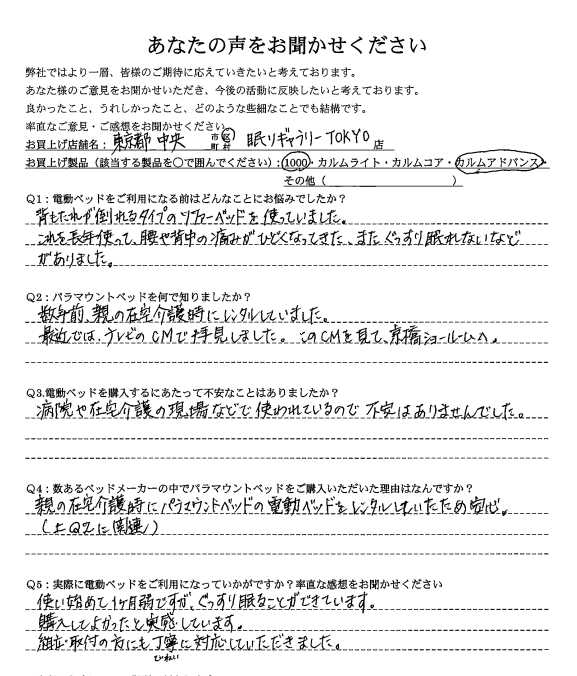 あなたの声をお聞かせください
弊社ではより一層、皆様のご期待に応えていきたいと考えております。
あなた様のご意見をお聞かせいただき、今後の活動に反映したいと考えております。
良かったこと、うれしかったこと、どのような些細なことでも結構です。
率直なご意見・ご感想をお聞かせください。
お買上げ店舗名: 東京都 中央 市区町村 眠りギャラリーTOKYO 店
お買上げ製品（該当する製品を○で囲んでください）: 1000・カルムライト・カルムコア・カルムアドバンス・
その他（　　　　　　　　　　）
Q1：電動ベッドをご利用になる前はどんなことにお悩みでしたか？
背もたれが倒れるタイプのソファーベッドを使っていました。
これを長年使って、腰や背中の痛みがひどくなってきた、またぐっすり眠れないなど
がありました。
Q2：パラマウントベッドを何で知りましたか？
数年前、親の在宅介護時にレンタルしていました。
最近では、テレビのCMで拝見しました。このCMを見て、京橋ショールームへ。
Q3.電動ベッドを購入するにあたって不安なことはありましたか？
病院や在宅介護の現場などで使われているので不安はありませんでした。
Q4：数あるベッドメーカーの中でパラマウントベッドをご購入いただいた理由はなんですか？
親の在宅介護時にパラマウントベッドの電動ベッドをレンタルしていたため安心。
（上Q2に関連）
Q5：実際に電動ベッドをご利用になっていかがですか？率直な感想をお聞かせください
使い始めて1ヶ月弱ですが、ぐっすり眠ることができています。
購入してよかったと実感しています。
組立・取付の方にも丁寧に対応していただきました。
ていねい